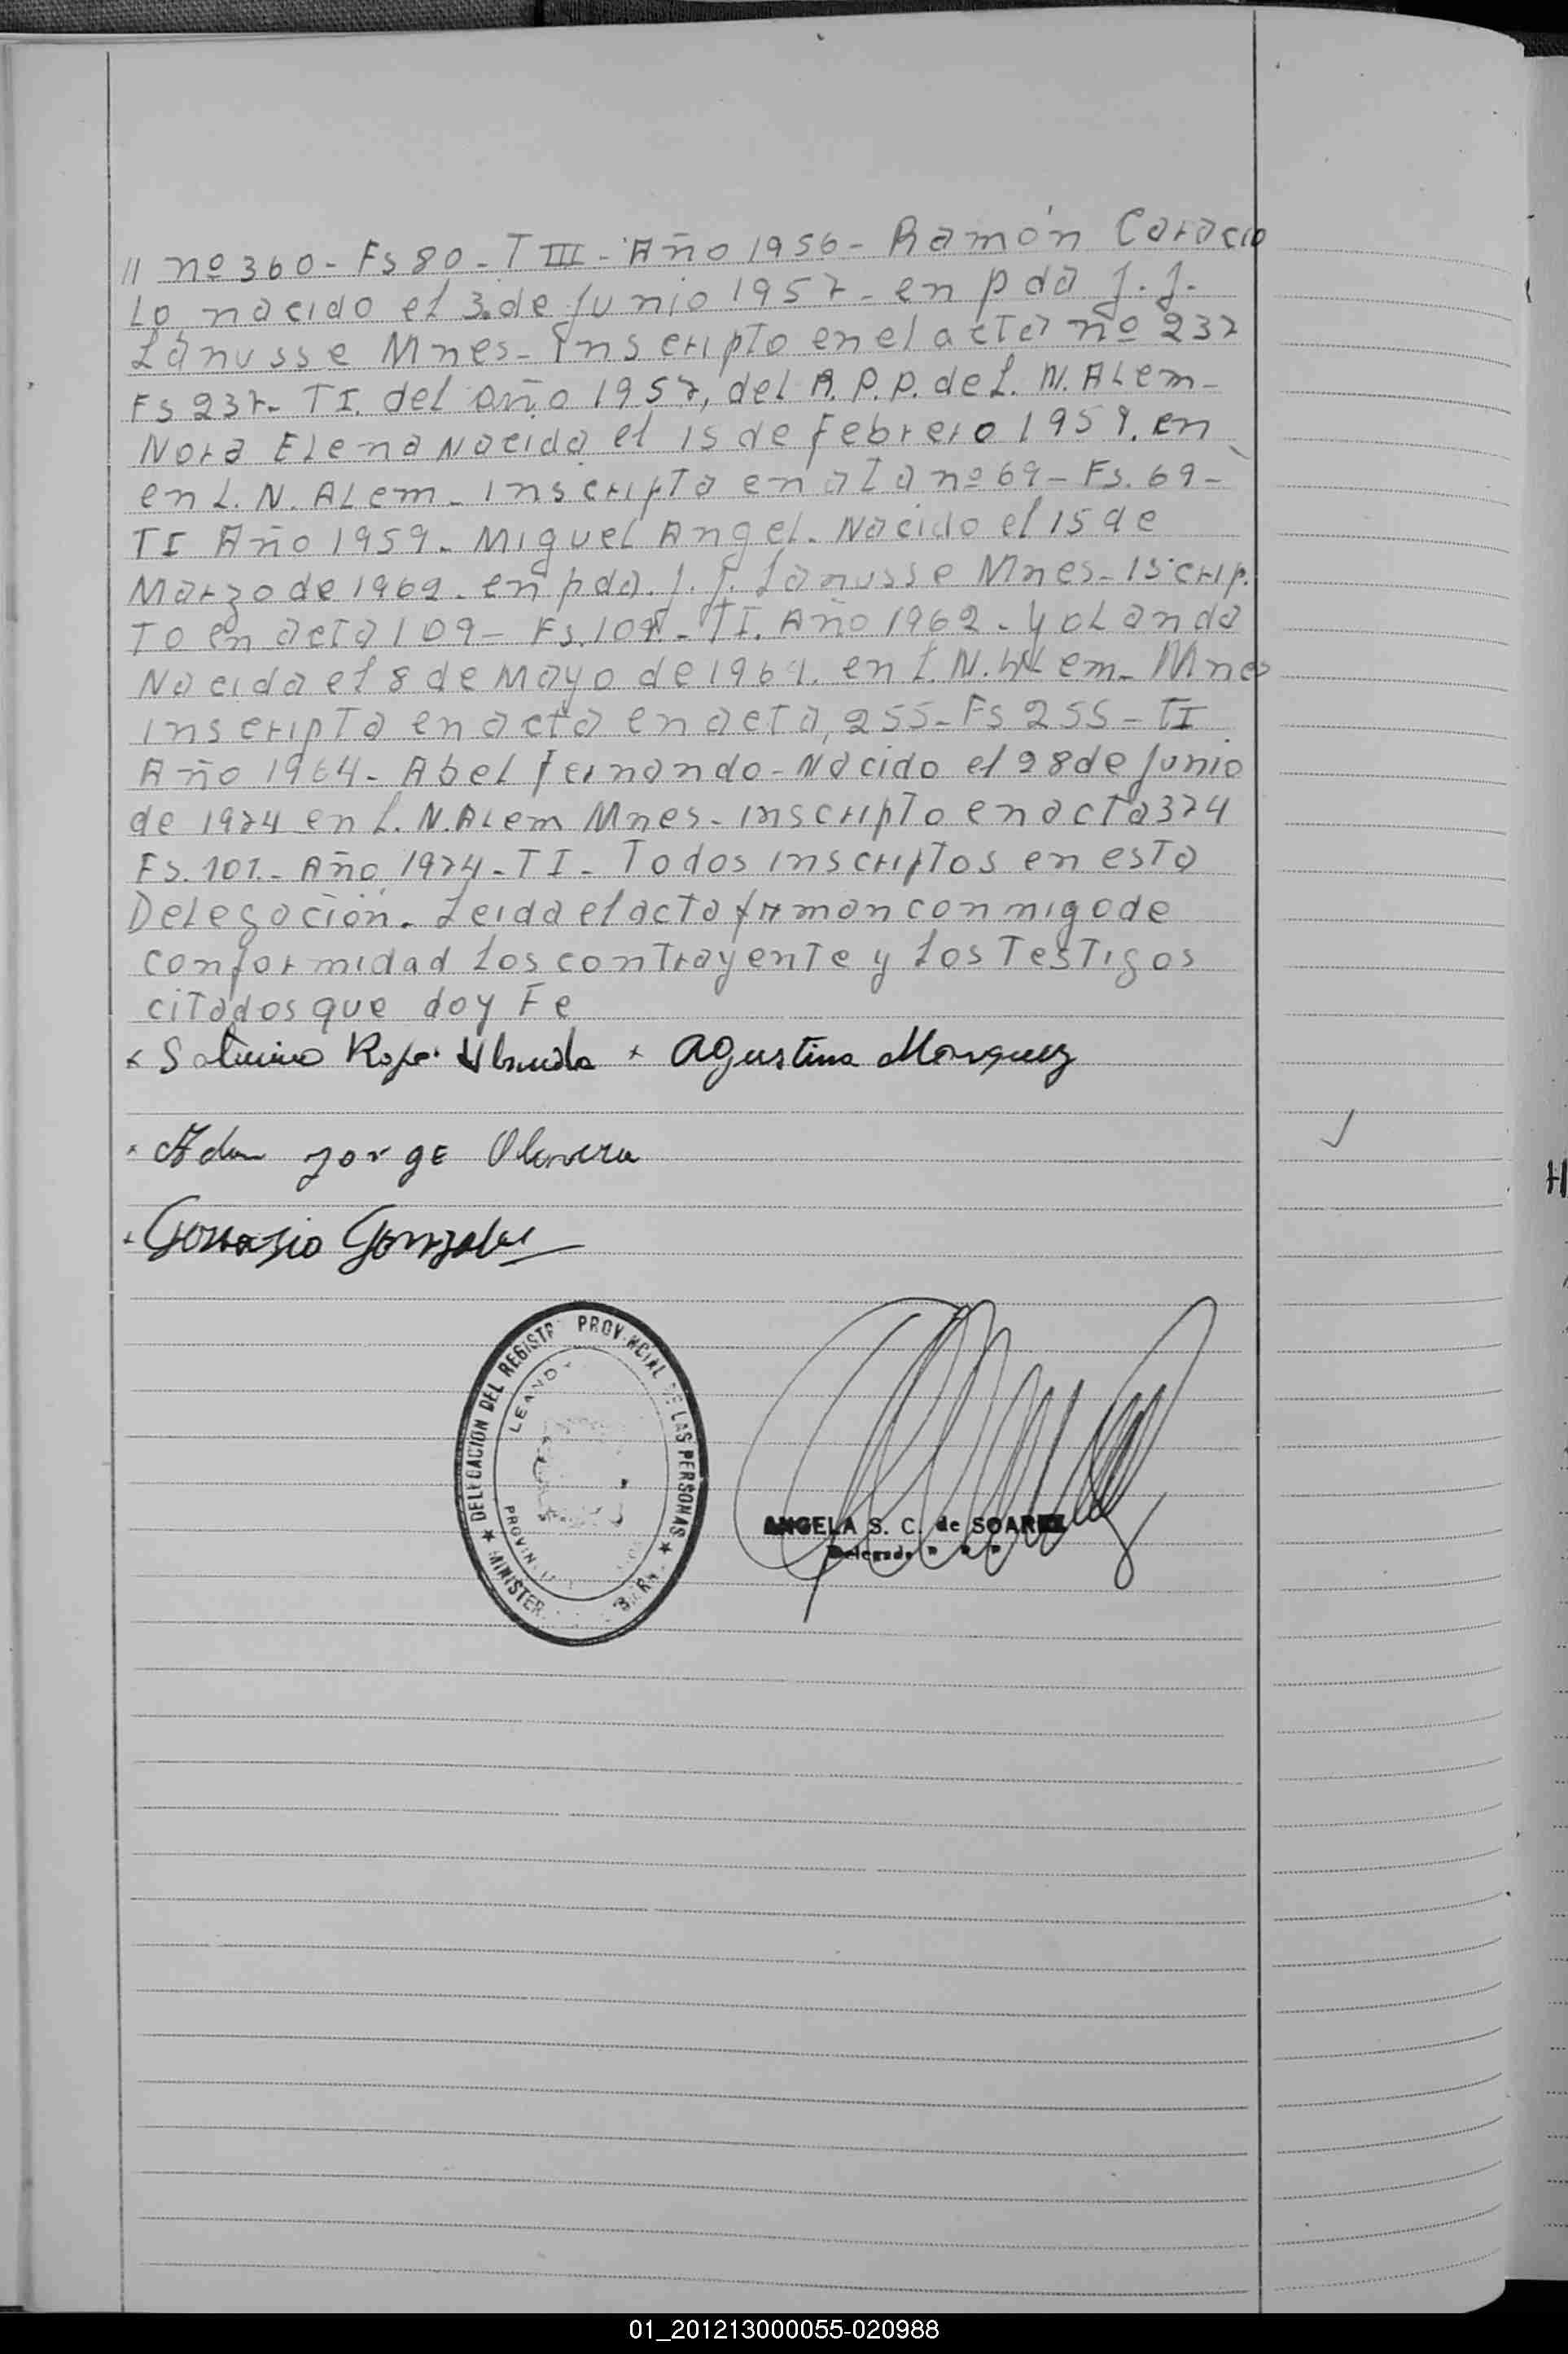 // nº 360 - Fs 80 - T III - Año 1956 - Ramón Caracio
Lo nacido el 3 de Junio 1957 - en pda J. J.
Lanusse Mnes - Inscripto en el acta nº 237
Fs 237 - T I. del año 1957, del R. P. P. de L. N. ALem -
Nora ELena Nacida el 15 de Febrero 1959. en
en L. N. ALem - Inscripta en ata nº 69 - Fs. 69 -
T I Año 1959 - MigueL AngeL. Nacido el 15 de
Marzo de 1962 - en pda. J. J. Lanusse Mnes - Iscrip.
To en acta 109 - Fs. 109 - T I. Año 1962 - YoLanda
Nacida el 8 de Mayo de 1964. en L. N. ALem - Mnes
Inscripta en acta en acta, 255 - Fs 255 - T I
Año 1964 - AbeL Fernando - Nacido el 28 de Junio
de 1974 en L. N. ALem Mnes - Inscripto en acta 374
Fs. 101. - Año 1974 - T I - Todos inscriptos en esta
DeLegación. Leida el acta firman conmigo de
conformidad Los contrayente y Los Testigos
citados que doy Fe
x Agustina Marquez
Jorge Olivera
Gervasio Gonzalez
DELEGACION DEL REGISTR PROVINCIAL DE LAS PERSONAS
LEAND
PROVIN
MINISTER
ANGELA S. C. de SOAREZ
Delegada R P P
01_201213000055-020988